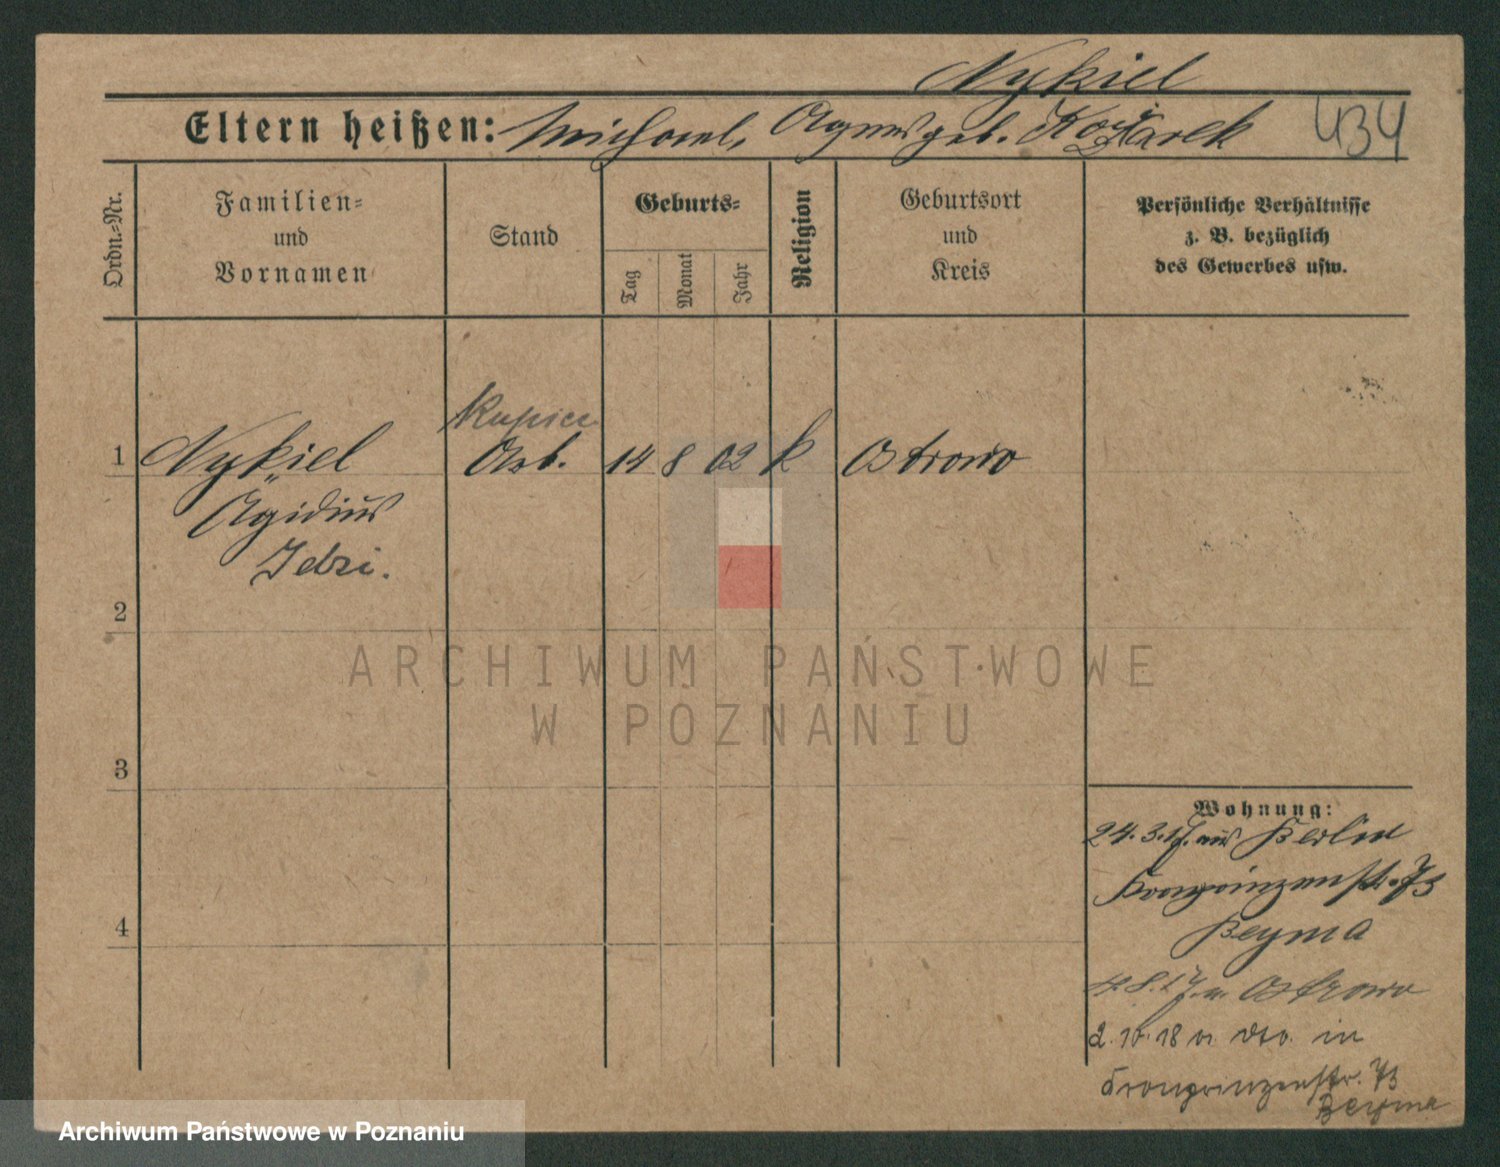 Nykiel
Eltern heißen: Michael, Agnes geb. Kozłarek
434
Ordn.-Nr.
Familien-
und
Vornamen
Stand
Geburts-
Tag
Monat
Jahr
Religion
Geburtsort
und
Kreis
Persönliche Verhältnisse
z. B. bezüglich
des Gewerbes usw.
Kupiec
1 Nykiel Arb. 14 8 02 k Ostrowo
Ägidius
Idzi.
2
ARCHIWUM PAŃSTWOWE
W POZNANIU
3
4
Wohnung:
24.3.17. aus Berlin
Kronprinzenstr. 73
Beyma
8.17. n. Ostrowo
2.10.18 v. dto. in
Kronprinzenstr. 73
Beyma
Archiwum Państwowe w Poznaniu